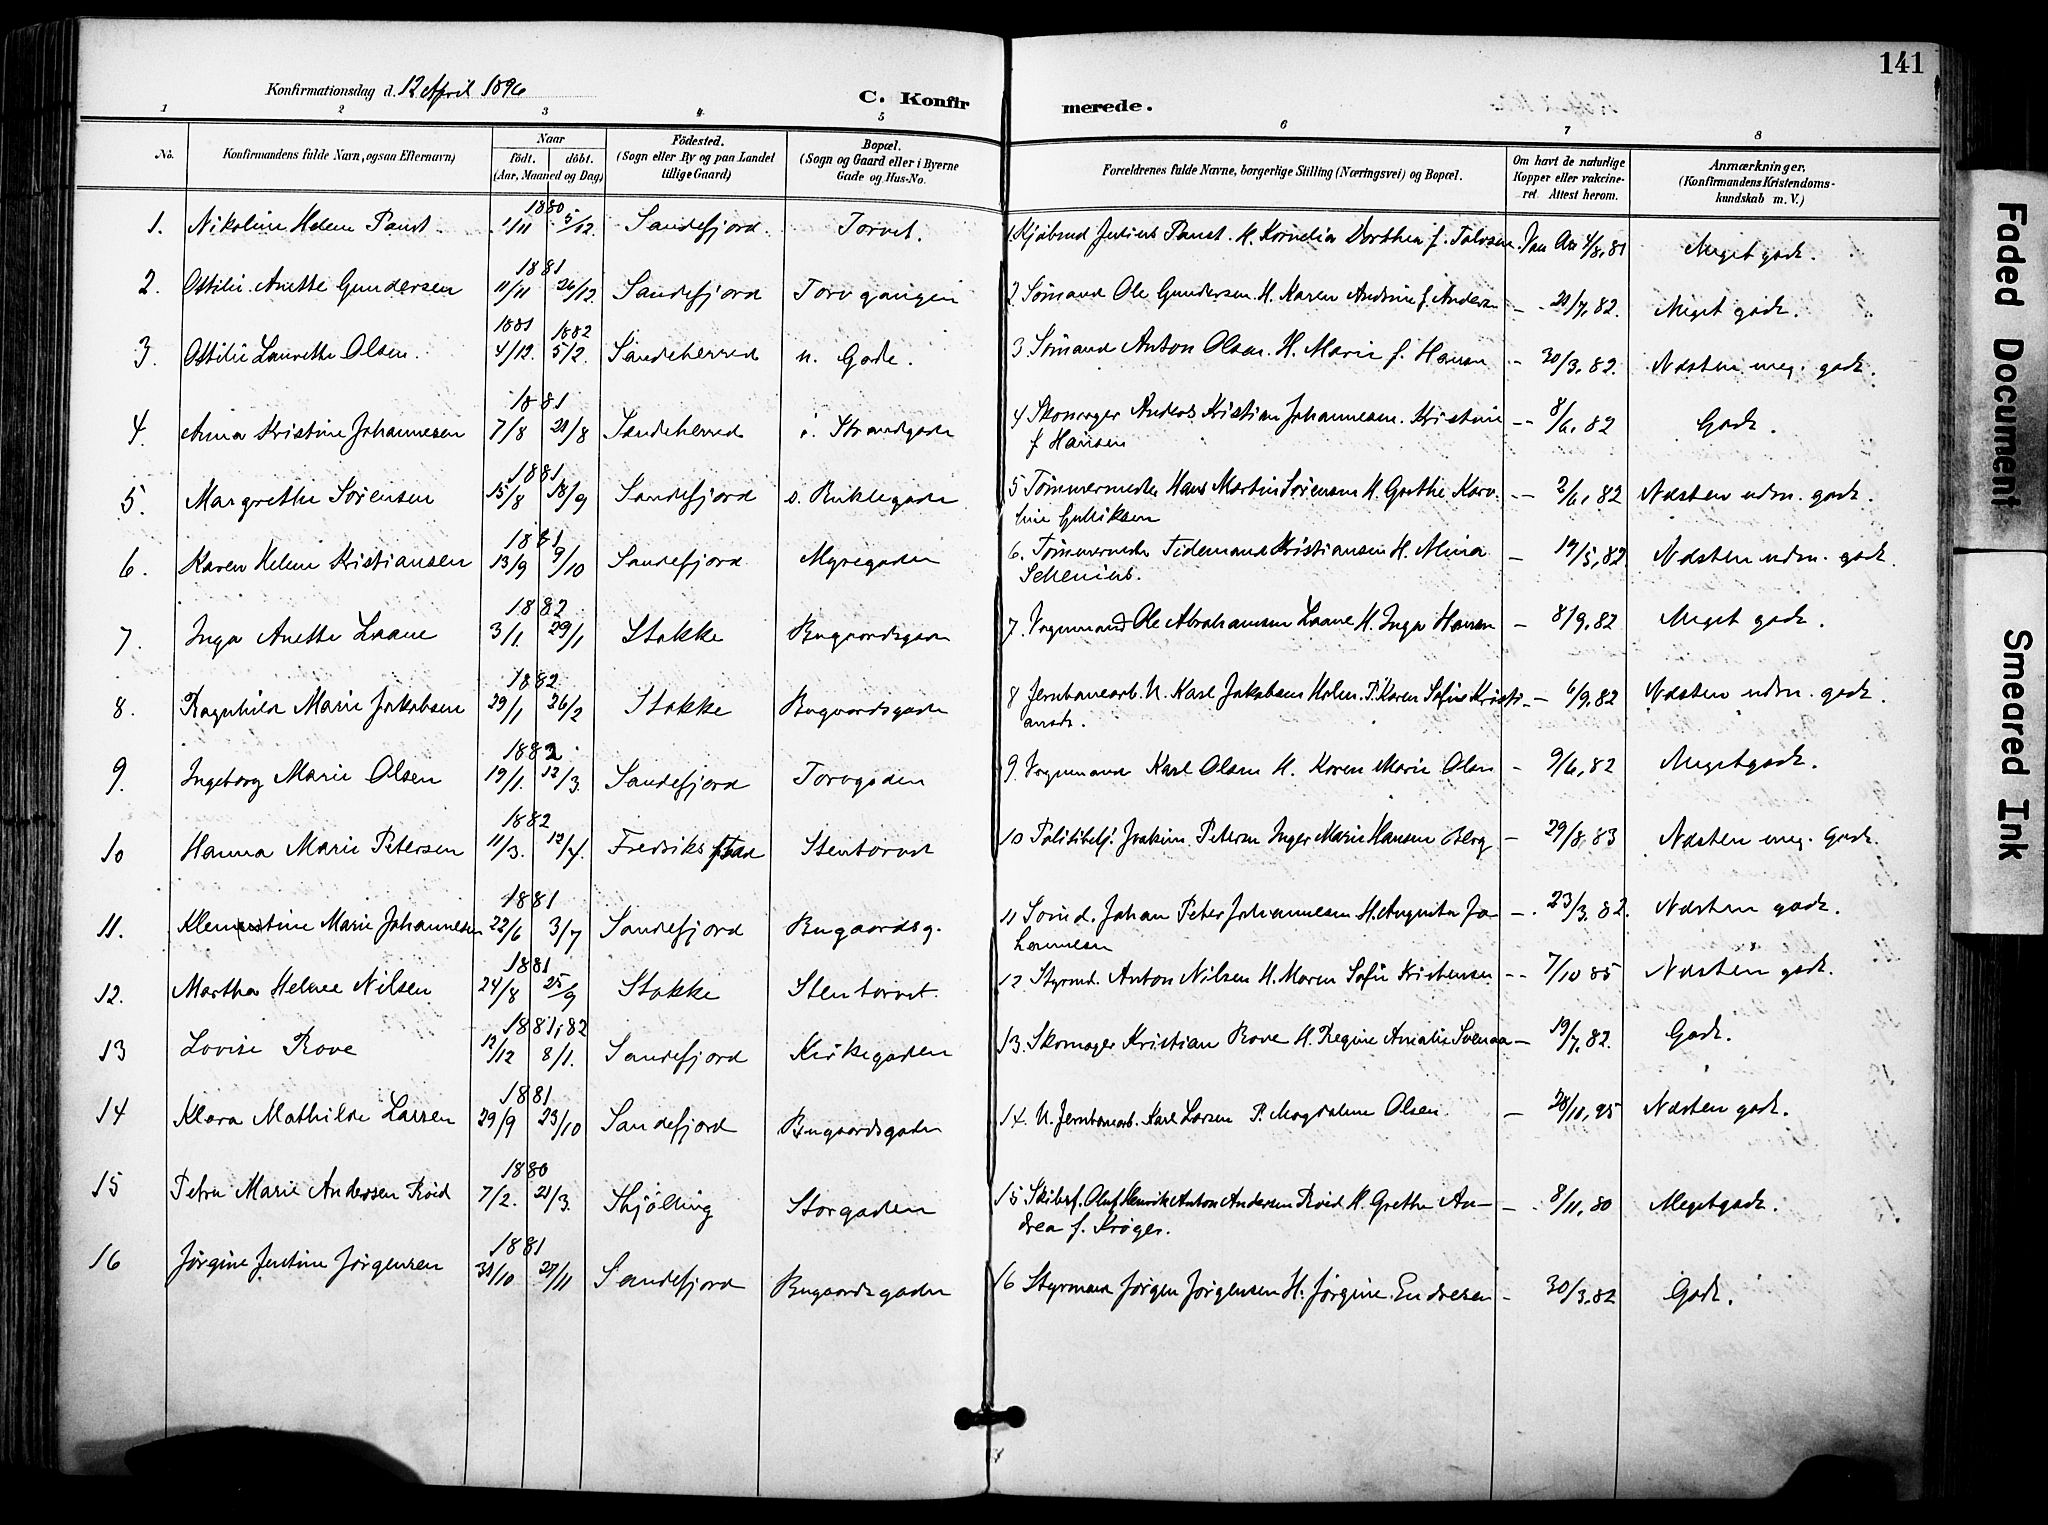 141
Konfirmationsdag d. 12 April 1896
C. Konfirmerede.
1 2 3 4 5 6 7 8
No. Konfirmandens fulde Navn, ogsaa Efternavn) Naar födt. döbt. (Aar, Maaned og Dag) Födested. (Sogn eller By og paa Landet tillige Gaard) Bopæl. (Sogn og Gaard eller i Byerne Gade og Hus-No. Forældrenes fulde Navne, borgerlige Stilling (Næringsvei) og Bopæl. Om havt de naturlige Kopper eller vakcineret Attest herom. Anmærkninger, (Konfirmandens Kristendomskundskab m. V.)
1. Nikoline Helene Paust. 1880 1/11 5/12. Sandefjord. Torvet. 1. Kjøbmd Julius Paust. H. Kornelia Dorthea f. 4/8, 81 Meget godt.
2. Ottilie Anette Gundersen 1881 11/11 26/12. Sandefjord Torvgangen 2 Sømand Ole Gundersen H. Karen Andrine f. Anders - 20/7, 82. Meget godt.
3. Ottilie Laurette Olsen. 1881 4/12. 1882 5/2. Sandeherred n. Gade. 3 Sømand Anton Olsen. H. Marie f. Hansen - 30/3, 82. Næsten meg. godt.
4. Anna Kristine Johannesen 1881 7/8 21/8 Sandeherred i. Strandgade 4 Skomager Anders Kristian Johannesen. Kristine f Hansen -- 8/6, 82 Godt.
5. Margrethe Sørensen 1881 15/8 18/9 Sandefjord s. Kirkegaden 5 Tømmermester Hans Martin Sørensen H. Grethe Karoline Gulliksen -- 2/6, 82 Næsten udm. godt.
6. Karen Helene Kristiansen 1881 13/9 9/10 Sandefjord Myregaden 6. Tømmermester Tidemand Kristiansen H. Mina - 19/5, 82 Næsten udm. godt.
7. Inga Anette Laane 1882 3/1. 29/1 Stokke Bugaardsgaden 7. Vognmand Ole Abrahamsen Laane H. Inga Hansen - 8/9, 82 Meget godt.
8. Ragnhild Marie Jakobsen 1882 29/1 26/2 Stokke Bugaardsgaden 8 Jernbanearb. U. Karl Jakobsen Holm. P. Karen Sofie Kristiansdt. - 6/9, 82 Næsten udm. godt.
9. Ingeborg Marie Olsen 1882 19/1. 12/3. Sandefjord Torvgaden 9. Vognmand Karl Olsen H. Karen Marie Olsen - 9/6, 82 Meget godt.
10 Hanna Marie Petersen 1882 11/3. 12/4. Fredriksstad Stentorvet 10 Politibetj. Joakim Petersen Inger Marie Hansen Berg - 29/8, 83 Næsten meg. Godt.
11. Klementine Marie Johannesen 1881 22/6 3/7 Sandefjord Bugaardsg. 11 Sømd. Johan Peter Johannesen H. Augusta Johannesen -. 23/3, 82. Næsten godt.
12. Martha Helene Nilsen 1881 24/8 25/9 Stokke Stentorvet. 12. Styrmd. Anton Nilsen H. Maren Sofie Kristensen -- 7/10 85 Næsten godt.
13 Lovise Rove 1881, 82 12/12 8/1. Sandefjord Kirkegaden 13. Skomager Kristian Rove H. Regine Amalie - 19/7, 82. Godt.
14 Klara Mathilde Larsen 1881 29/9 23/10 Sandefjord Bugaardsgaden 14. U. Jernbanearb. Karl Larsen P. Magdalene Olsen. - 28/11, 95 Næsten godt.
15 Petra Marie Andersen Roed 1880 7/2. 21/3. Thjølling Storgaden 15 Skibsf. Oluf Henrik Anton Andersen Roed H. Grethe Andrea f. Krøger. -. 8/11, 80 Meget godt.
16 Jørgine Justine Jørgensen 1881 31/10 27/11 Sandefjord Bugaardsgaden 16 Styrmand Jørgen Jørgensen H. Jørgine Endresen - 30/3, 82 Godt.
Faded Document
Smeared Ink